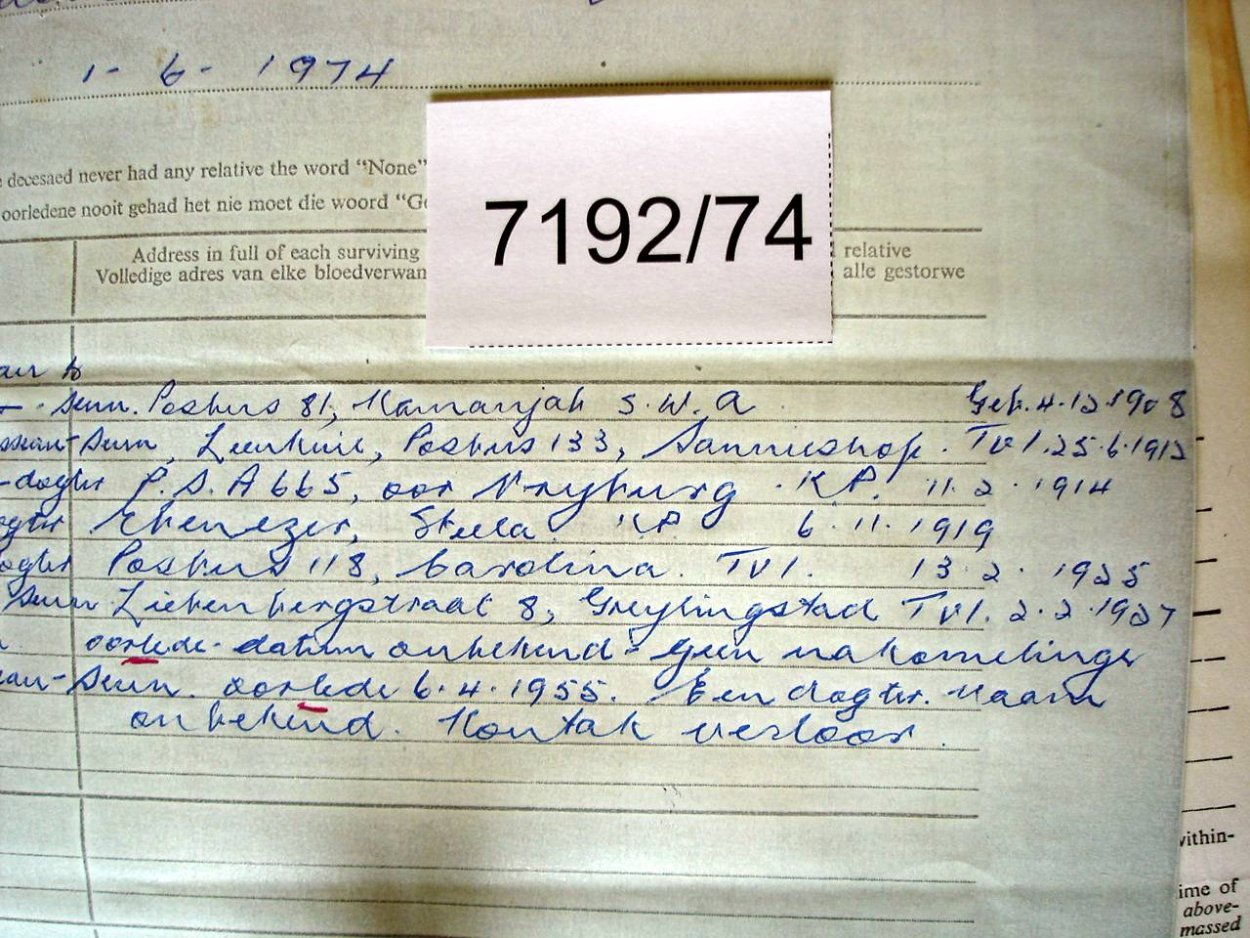 1 - 6 - 1974
7192/74
decesaed never had any relative the word “None”
oorledene nooit gehad het nie moet die woord “G
Address in full of each surviving relative
Volledige adres van elke bloedverwan alle gestorwe
seun. Posbus 81, Kamanjah S.W.A. Geb. 4.12.1908
seun, Posbus 133, Sannieshof. Tvl. 25.6.1912
-dogter P.S.A 665, oor Vryburg. KP. 11.2.1914
ogter Ebenezer, Stella. KP. 6.11.1919
ogter Posbus 118, Carolina. Tvl. 13.2.1925
seun Liebenbergstraat 8, Greylingstad Tvl. 2.2.1927
oorlede - datum onbekend - geen nakomelinge
-seun. oorlede 6.4.1955. Een dogter. Naam
onbekend. Kontak verloor.
within-
ime of
above-
massed